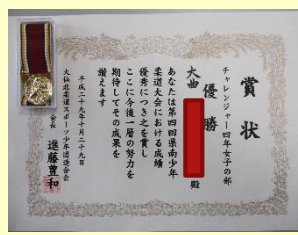 賞状
チャレンジャー四年女子の部
優勝
大曲
殿
あなたは第四回県南少年
柔道大会における成績
優秀につき之を賞し
ここに今後一層の努力を
期待してその成果を
讃えます
平成二十九年十月二十九日
大仙北柔道スポーツ少年団連合会
会長 進藤豊和